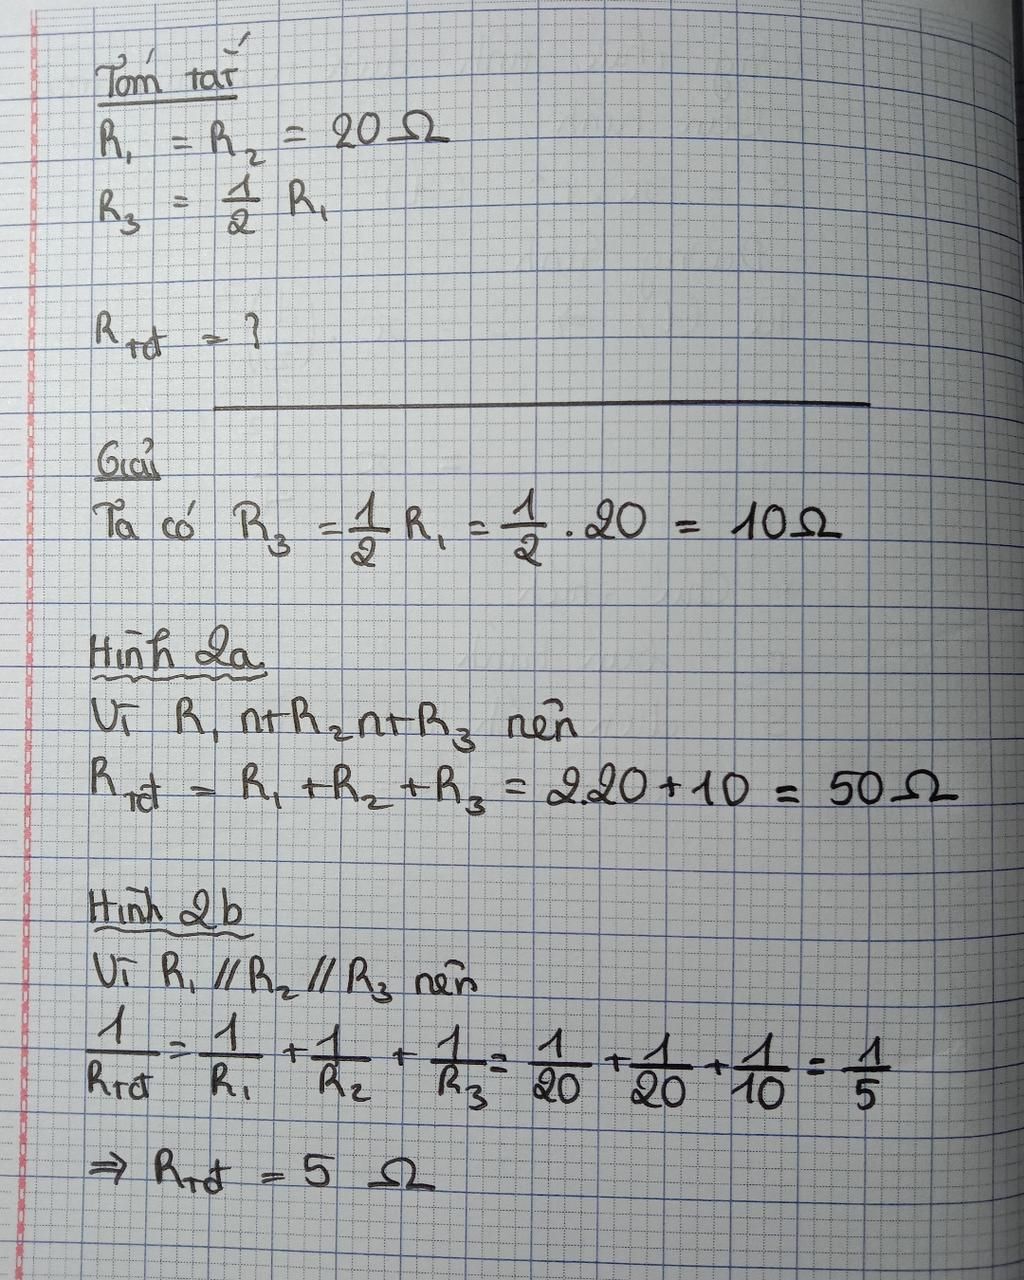 Tóm tắt
R₁ = R₂ = 20 Ω
R₃ = 1/2 R₁
Rtđ = ?
Giải
Ta có R₃ = 1/2 R₁ = 1/2 . 20 = 10 Ω
Hình 2a
Vì R₁ nt R₂ nt R₃ nên
Rtđ = R₁ + R₂ + R₃ = 2.20 + 10 = 50 Ω
Hình 2b
Vì R₁ // R₂ // R₃ nên
1/Rtđ = 1/R₁ + 1/R₂ + 1/R₃ = 1/20 + 1/20 + 1/10 = 1/5
⇒ Rtđ = 5 Ω